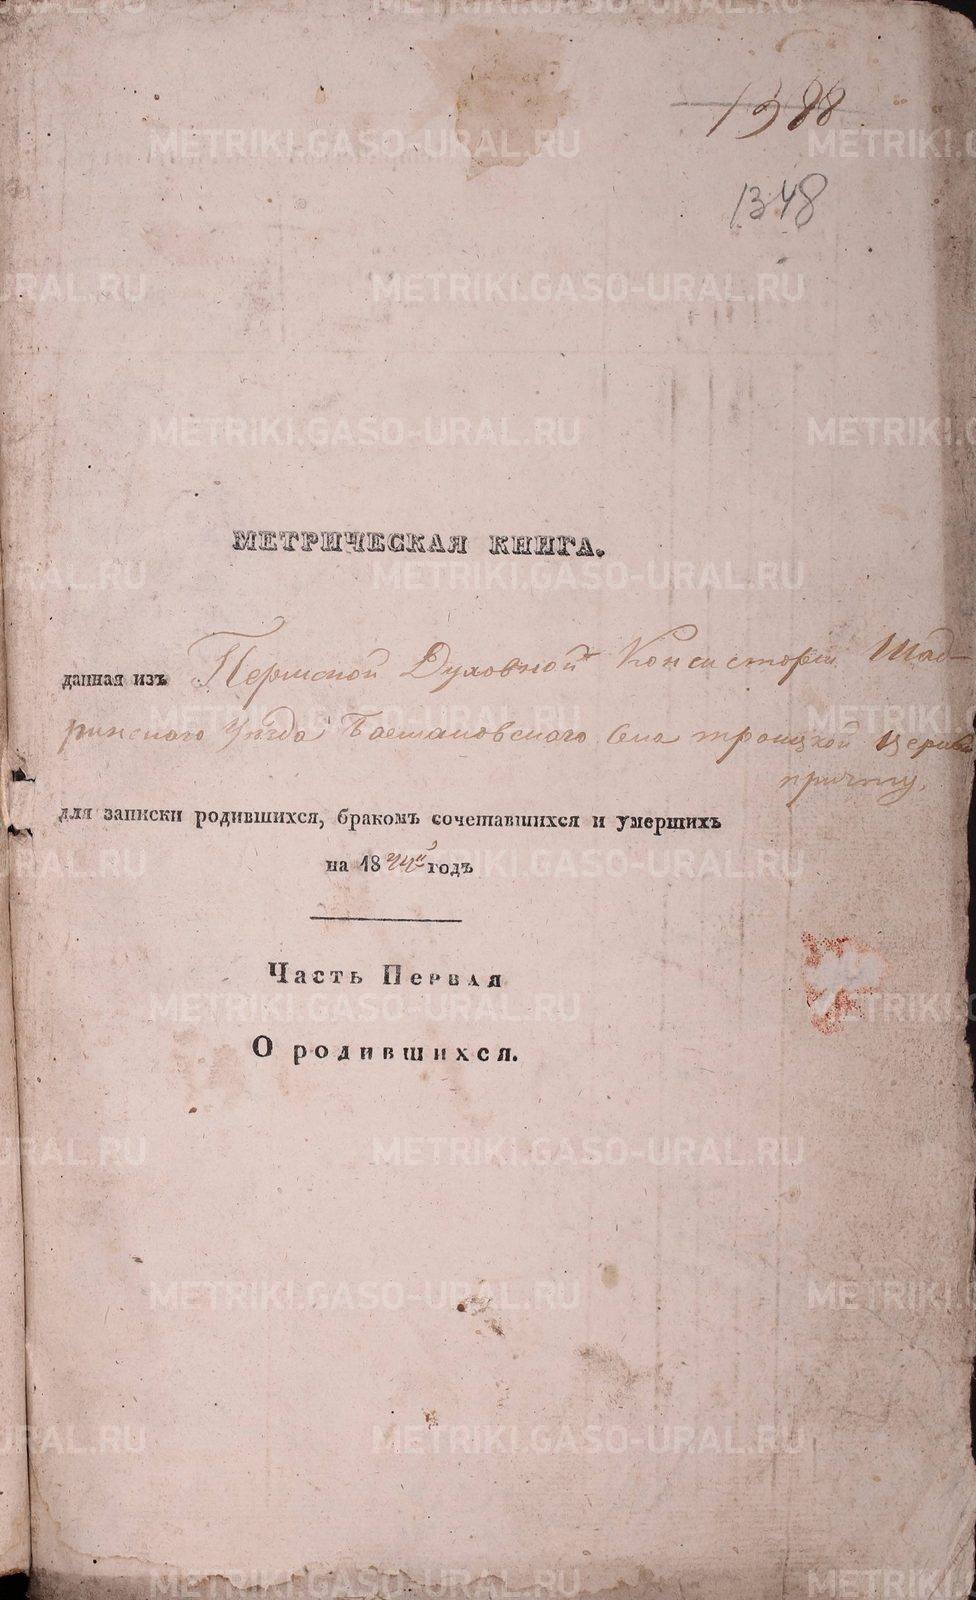 1988
1348
МЕТРИЧЕСКАЯ КНИГА.
данная изъ Пермской Духовной Консисторіи Шад-
ринскаго Уѣзда Басмановскаго села троицкой церкви
причту,
для записки родившихся, бракомъ сочетавшихся и умершихъ
на 1844й годъ
Часть Первая
О родившихся.
METRIKI.GASO-URAL.RU